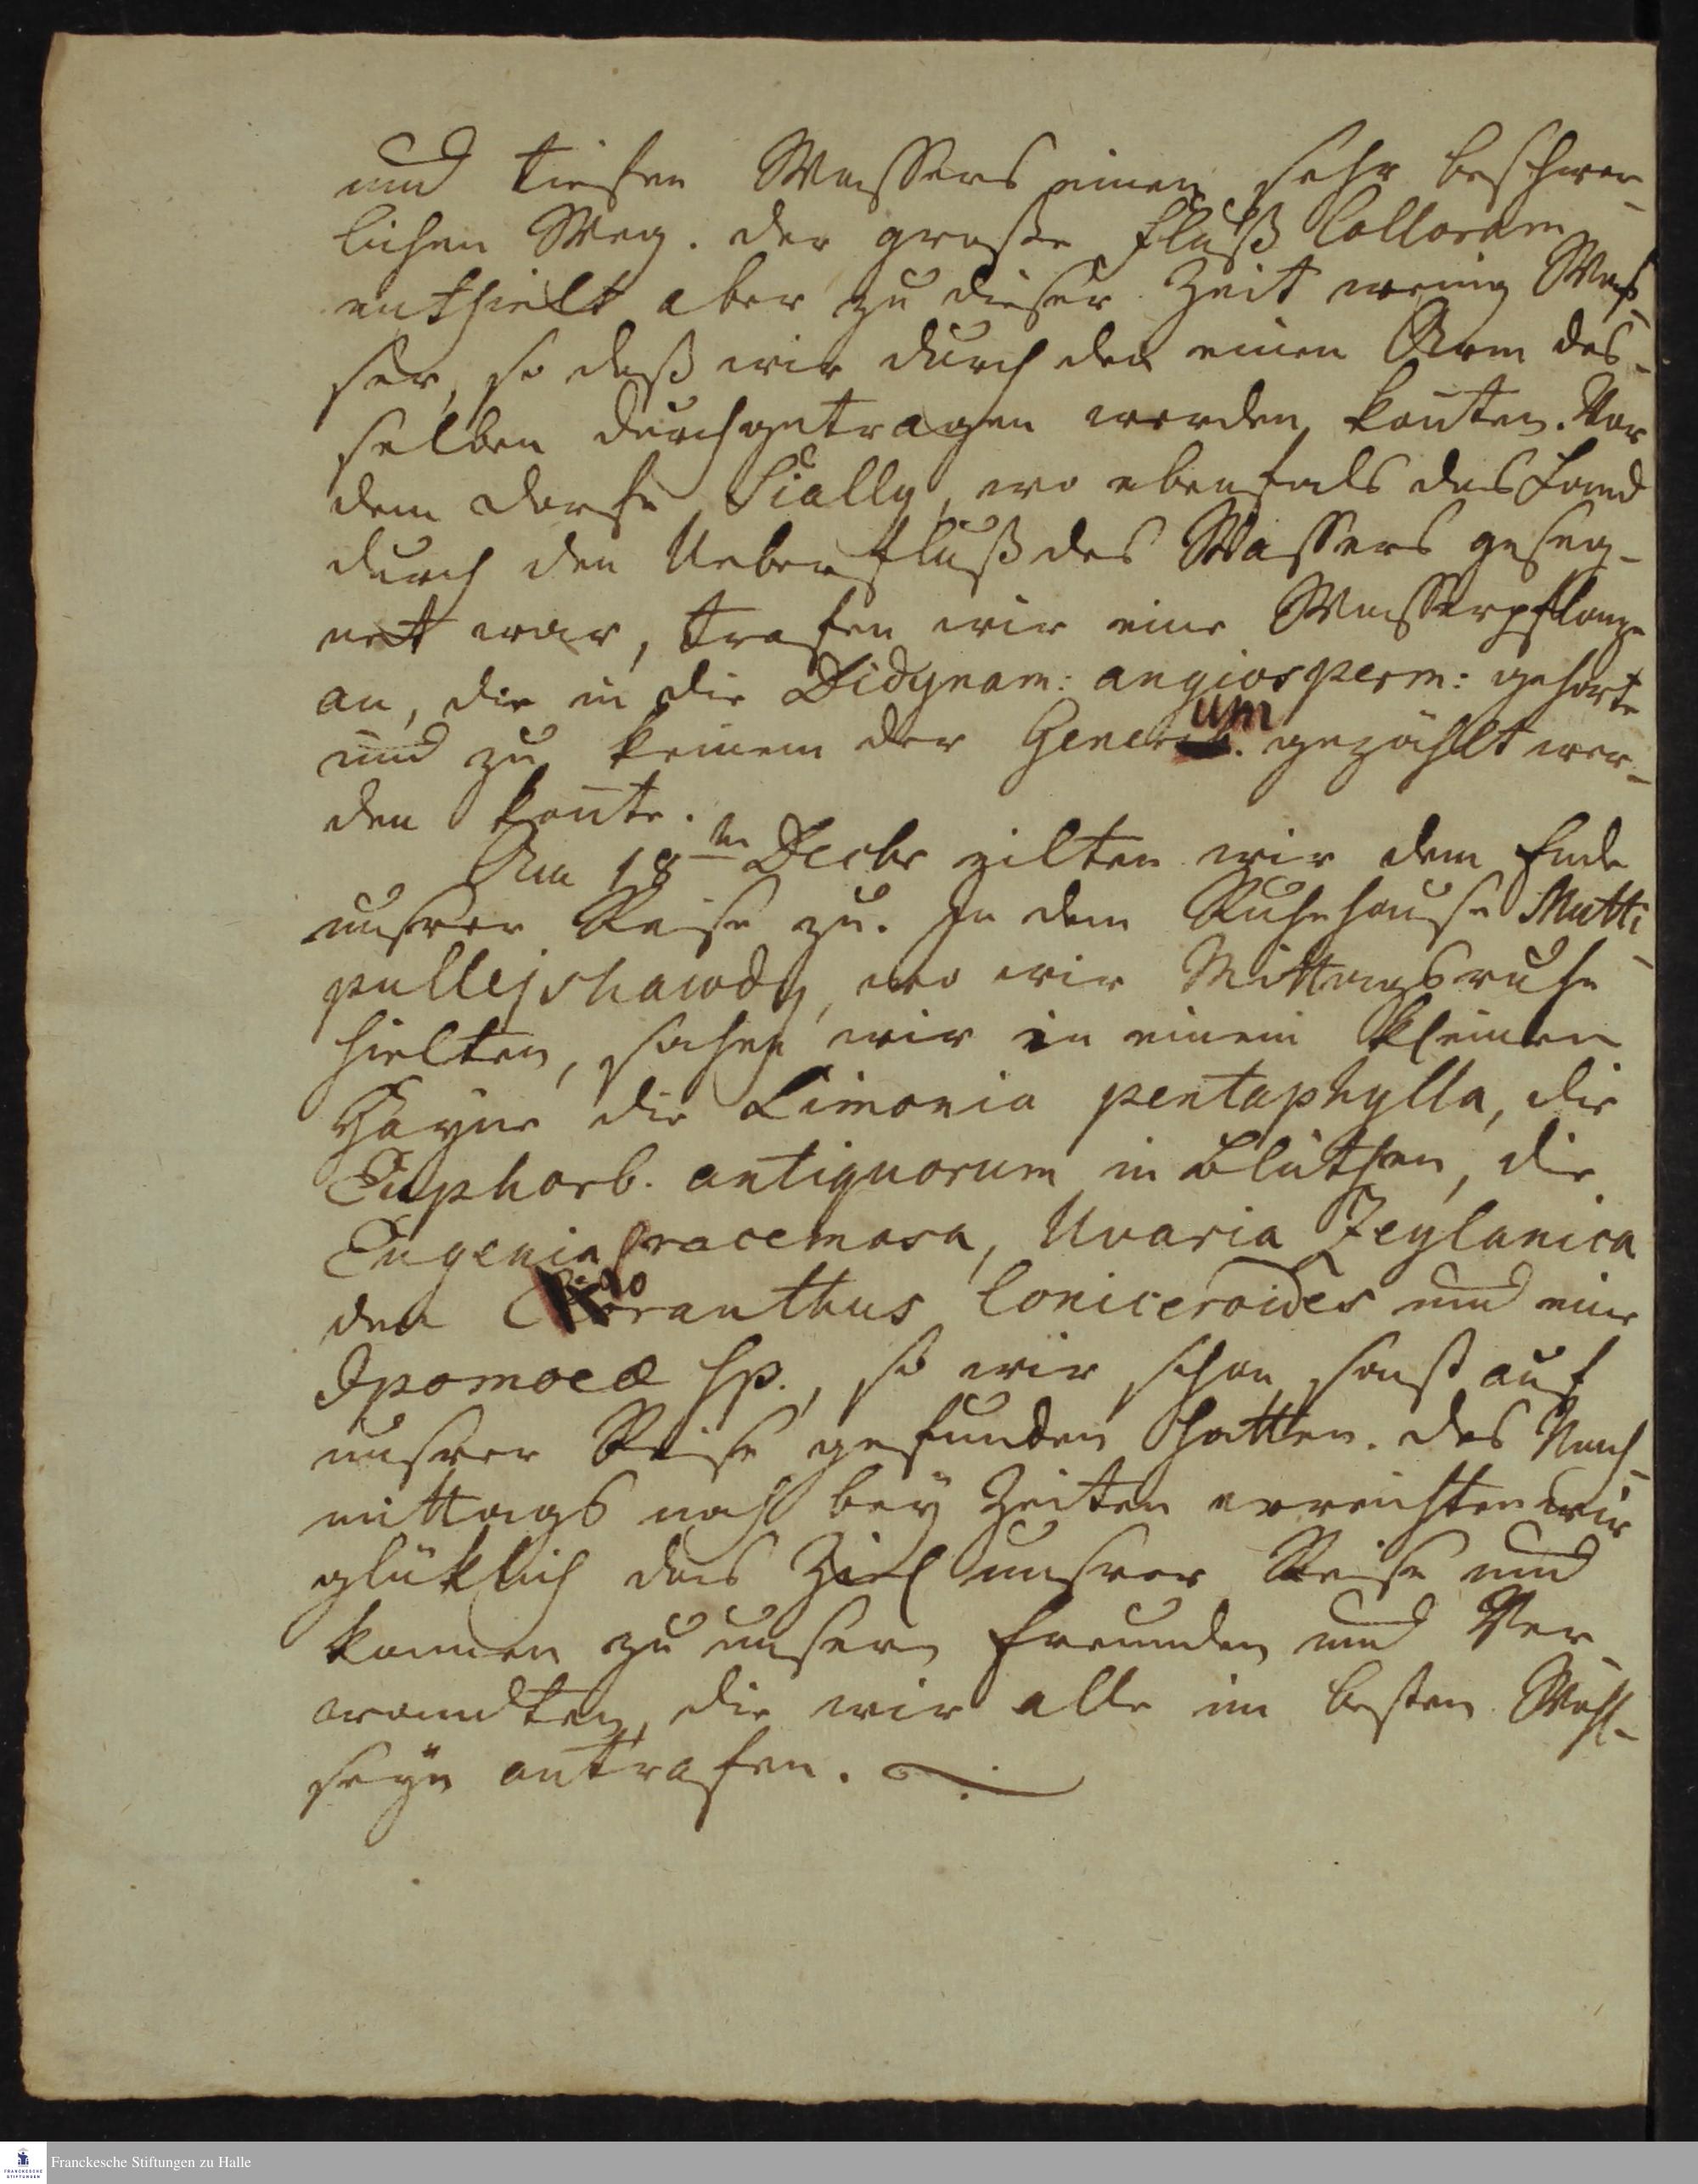 und tiefen Wassers einen sehr beschwer-
lichen Weg. Der große Fluß Colloram
enthielt aber zu dieser Zeit wenig Was-
ser, so daß wir durch den einen Arm des-
selben durchgetragen werden kon̄ten. Vor
dem Dorfe Sially, wo ebenfals das Land
durch den Ueberfluß des Wassers geseg-
net war, trafen wir eine Wasserpflanze
an, die in die Didynam: angiosperm: gehörte
und zu keinem der Generum gezählt wer-
den kon̄te.
Am 18ten Decbr eilten wir dem Ende
unsrer Reise zu. In dem Ruhehause Mutti-
pullejshawdy, wo wir Mittagsruhe
hielten, sahen wir in einem kleinen
Hayne die Limonia pentaphylla, die
Euphorb. antiquorum in Blüthen, die
Eugenia racemosa, Uvaria Zeylanica
den Loranthus loniceroides und eine
Ipomoeæ sp., so wir schon sonst auf
unsrer Reise gefunden hatten. Des Nach-
mittags noch bey Zeiten erreichten wir
glüklich das Ziel unsrer Reise und
kamen zu unsern Freunden und Ver
wandten, die wir alle im besten Wohl-
seyn antrafen.
Franckesche Stiftungen zu Halle